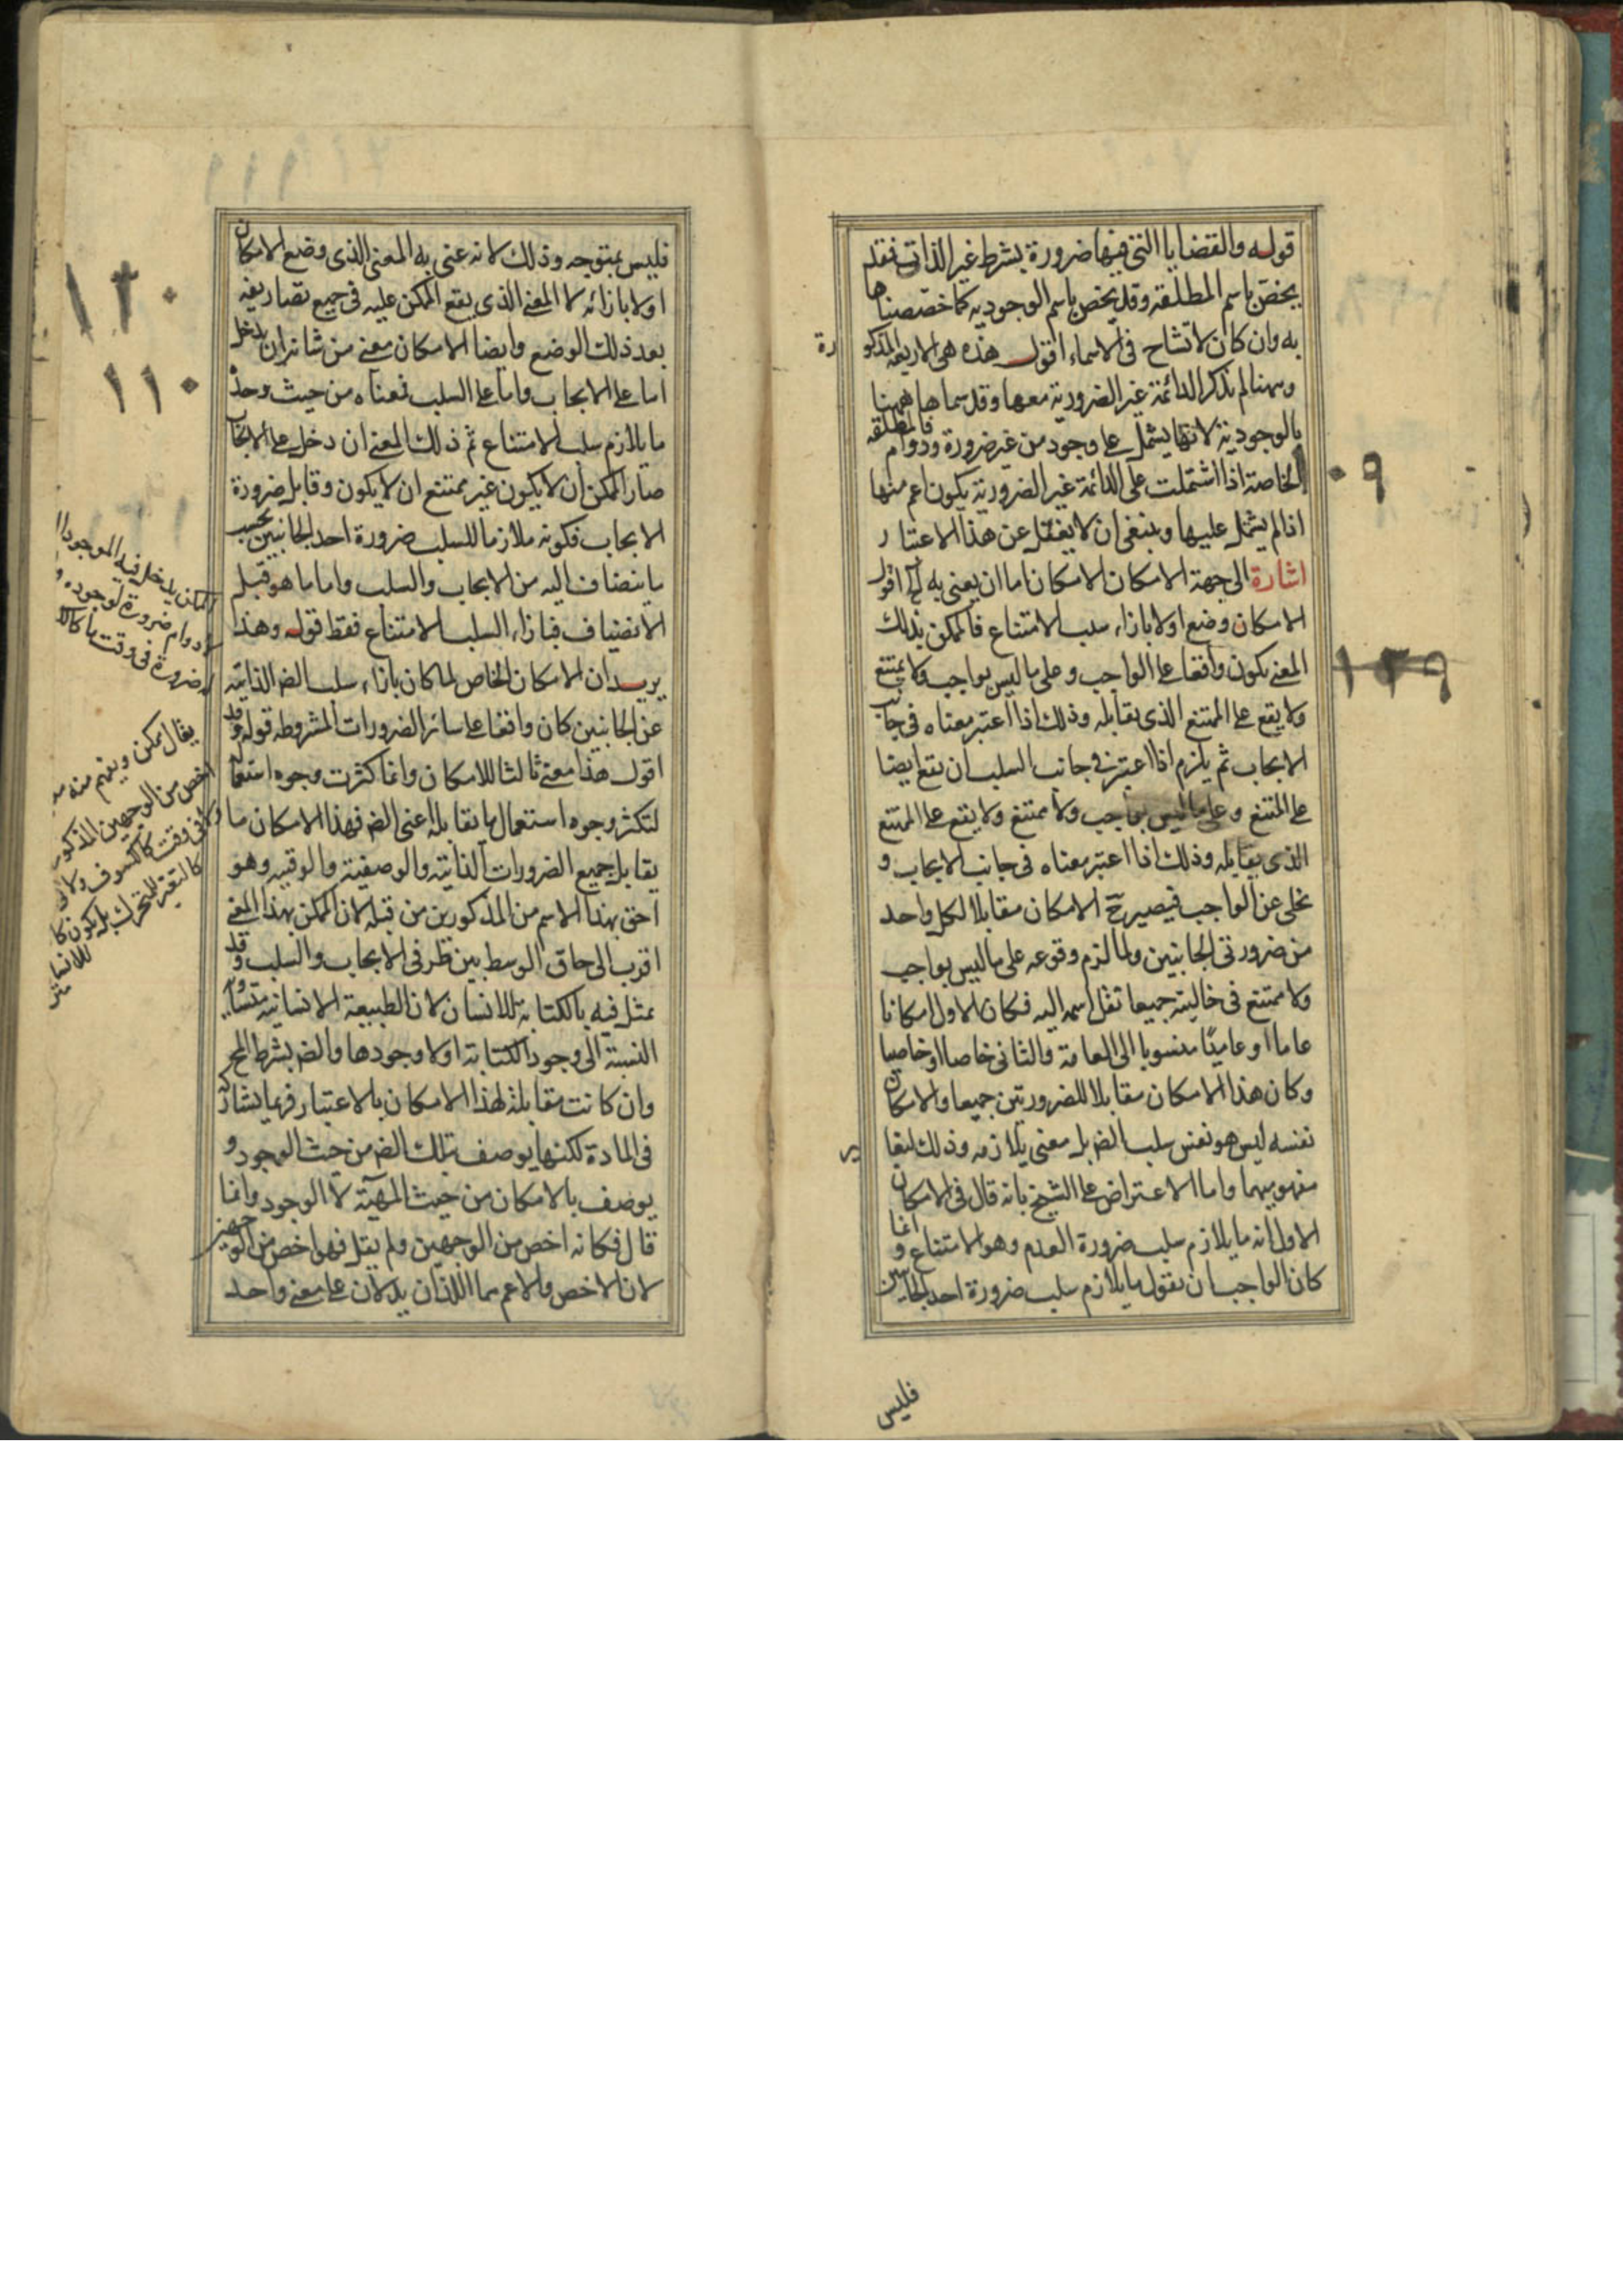 قوله والقضايا التي فيها ضرورة بشرط غير الذات فقد
يخص باسم المطلقه وقد يخص باسم الوجوديه كما خصصناها
به وان كان لا تشاح في الاسماء اقول هذه هي الاربعة المذكورة
وههنا لم يذكر الدائمة غير الضرورية معها وقد سماها ههنا
بالوجودية لانها يشمل على وجود من غير ضرورة ودوام فالمطلقه
الخاصة اذا اشتملت على الدائمة غير الضرورية يكون اعم منها
اذا لم يشمل عليها وينبغي ان لا يغفل عن هذا الاعتبار
اشارة الى جهة الامكان الامكان اما ان يعنى به اقول
الامكان وضع اولا بازاء سلب الامتناع فالممكن بذلك
المعنى يكون واقعا على الواجب وعلى ما ليس بواجب ولا يمتنع
ولا يقع على الممتنع الذي يقابله وذلك اذا اعتبر معناه في جانب
الايجاب ثم يلزم اذا اعتبر في جانب السلب ان يقع ايضا
على الممتنع وعلى ما ليس بواجب ولا ممتنع ولا يقع على الممتنع
الذي يقابله وذلك اذا اعتبر معناه في جانب الايجاب و
تخلى عن الواجب فيصير ح الامكان مقابلا لكل واحد
من ضرورتي الجانبين ولما لزم وقوعه على ما ليس بواجب
ولا ممتنع في حاليته جميعا نقل اسمه اليه فكان الاول امكانا
عاما او عاميا منسوبا الى العامة والثاني خاصا او خاصيا
وكان هذا الامكان مقابلا للضرورتين جميعا والامكان
نفسه ليس هو نفس سلب الضر بل معنى يلازمه وذلك لتغاير
مفهوميهما واما الاعتراض على الشيخ بانه قال في الامكان
الاول انه ما يلازم سلب ضرورة العدم وهو الامتناع وانما
كان الواجب ان يقول ما يلازم سلب ضرورة احد الجانبين
فليس
٠٩
١٣٩
فليس بمتوجه وذلك لانه عنى به المعنى الذي وضع الامكان
اولا بازائه لا المعنى الذي يقع الممكن عليه في جميع تصاريفه
بعد ذلك الوضع وايضا الامكان معنى من شانه ان يدخل
اما على الايجاب واما على السلب فمعناه من حيث وحده
ما يلازم سلب الامتناع ثم ذلك المعنى ان دخل على الايجاب
صار الممكن ان لا يكون غير ممتنع ان لا يكون وقابل ضرورة
الايجاب فكونه ملازما للسلب ضرورة احد الجانبين بحسب
ما ينضاف اليه من الايجاب والسلب واما ما هو قبل
الانضياف فبازاء السلب الامتناع فقط قوله وهذا
يريد ان الامكان الخاص لما كان بازاء سلب الضر الذاتية
عن الجانبين كان واقعا على سائر الضرورات المشروطه قوله وقد
اقول هذا معنى ثالث للامكان وانما كثرت وجوه استعماله
لتكثر وجوه استعمال ما يقابله اعني الضر فهذا الامكان ما
يقابل جميع الضرورات الذاتية والوصفية والوقتيه وهو
احق بهذا الاسم من المذكورين من قبله لان الممكن بهذا المعنى
اقرب الى حاق الوسط بين طرفي الايجاب والسلب وقد
يمثل فيه بالكتابة للانسان لان الطبيعة الانسانية متساوية
النسبة الى وجود الكتابة او لا وجودها والضر بشرط المحمول
وان كانت مقابلة لهذا الامكان بالاعتبار فربما يشاركه
في المادة لكنها يوصف بتلك الضر من حيث الوجود و
يوصف بالامكان من حيث المهية لا الوجود وانما
قال فكانه اخص من الوجهين ولم يقل فهو اخص من الوجهين
لان الاخص والاعم هما اللذان يدلان على معنى واحد
١٢٠
١١٠
الممكن يدخل فيه الموجود
لا دوام ضرورة لوجوده و
ضرورة في وقت ما كالك
يقال ممكن ويفهم منه
اخص من الوجهين المذكور
ولا في وقت كالكسوف ولا
كالتغير للمتحرك بل يكون كا
للانسان